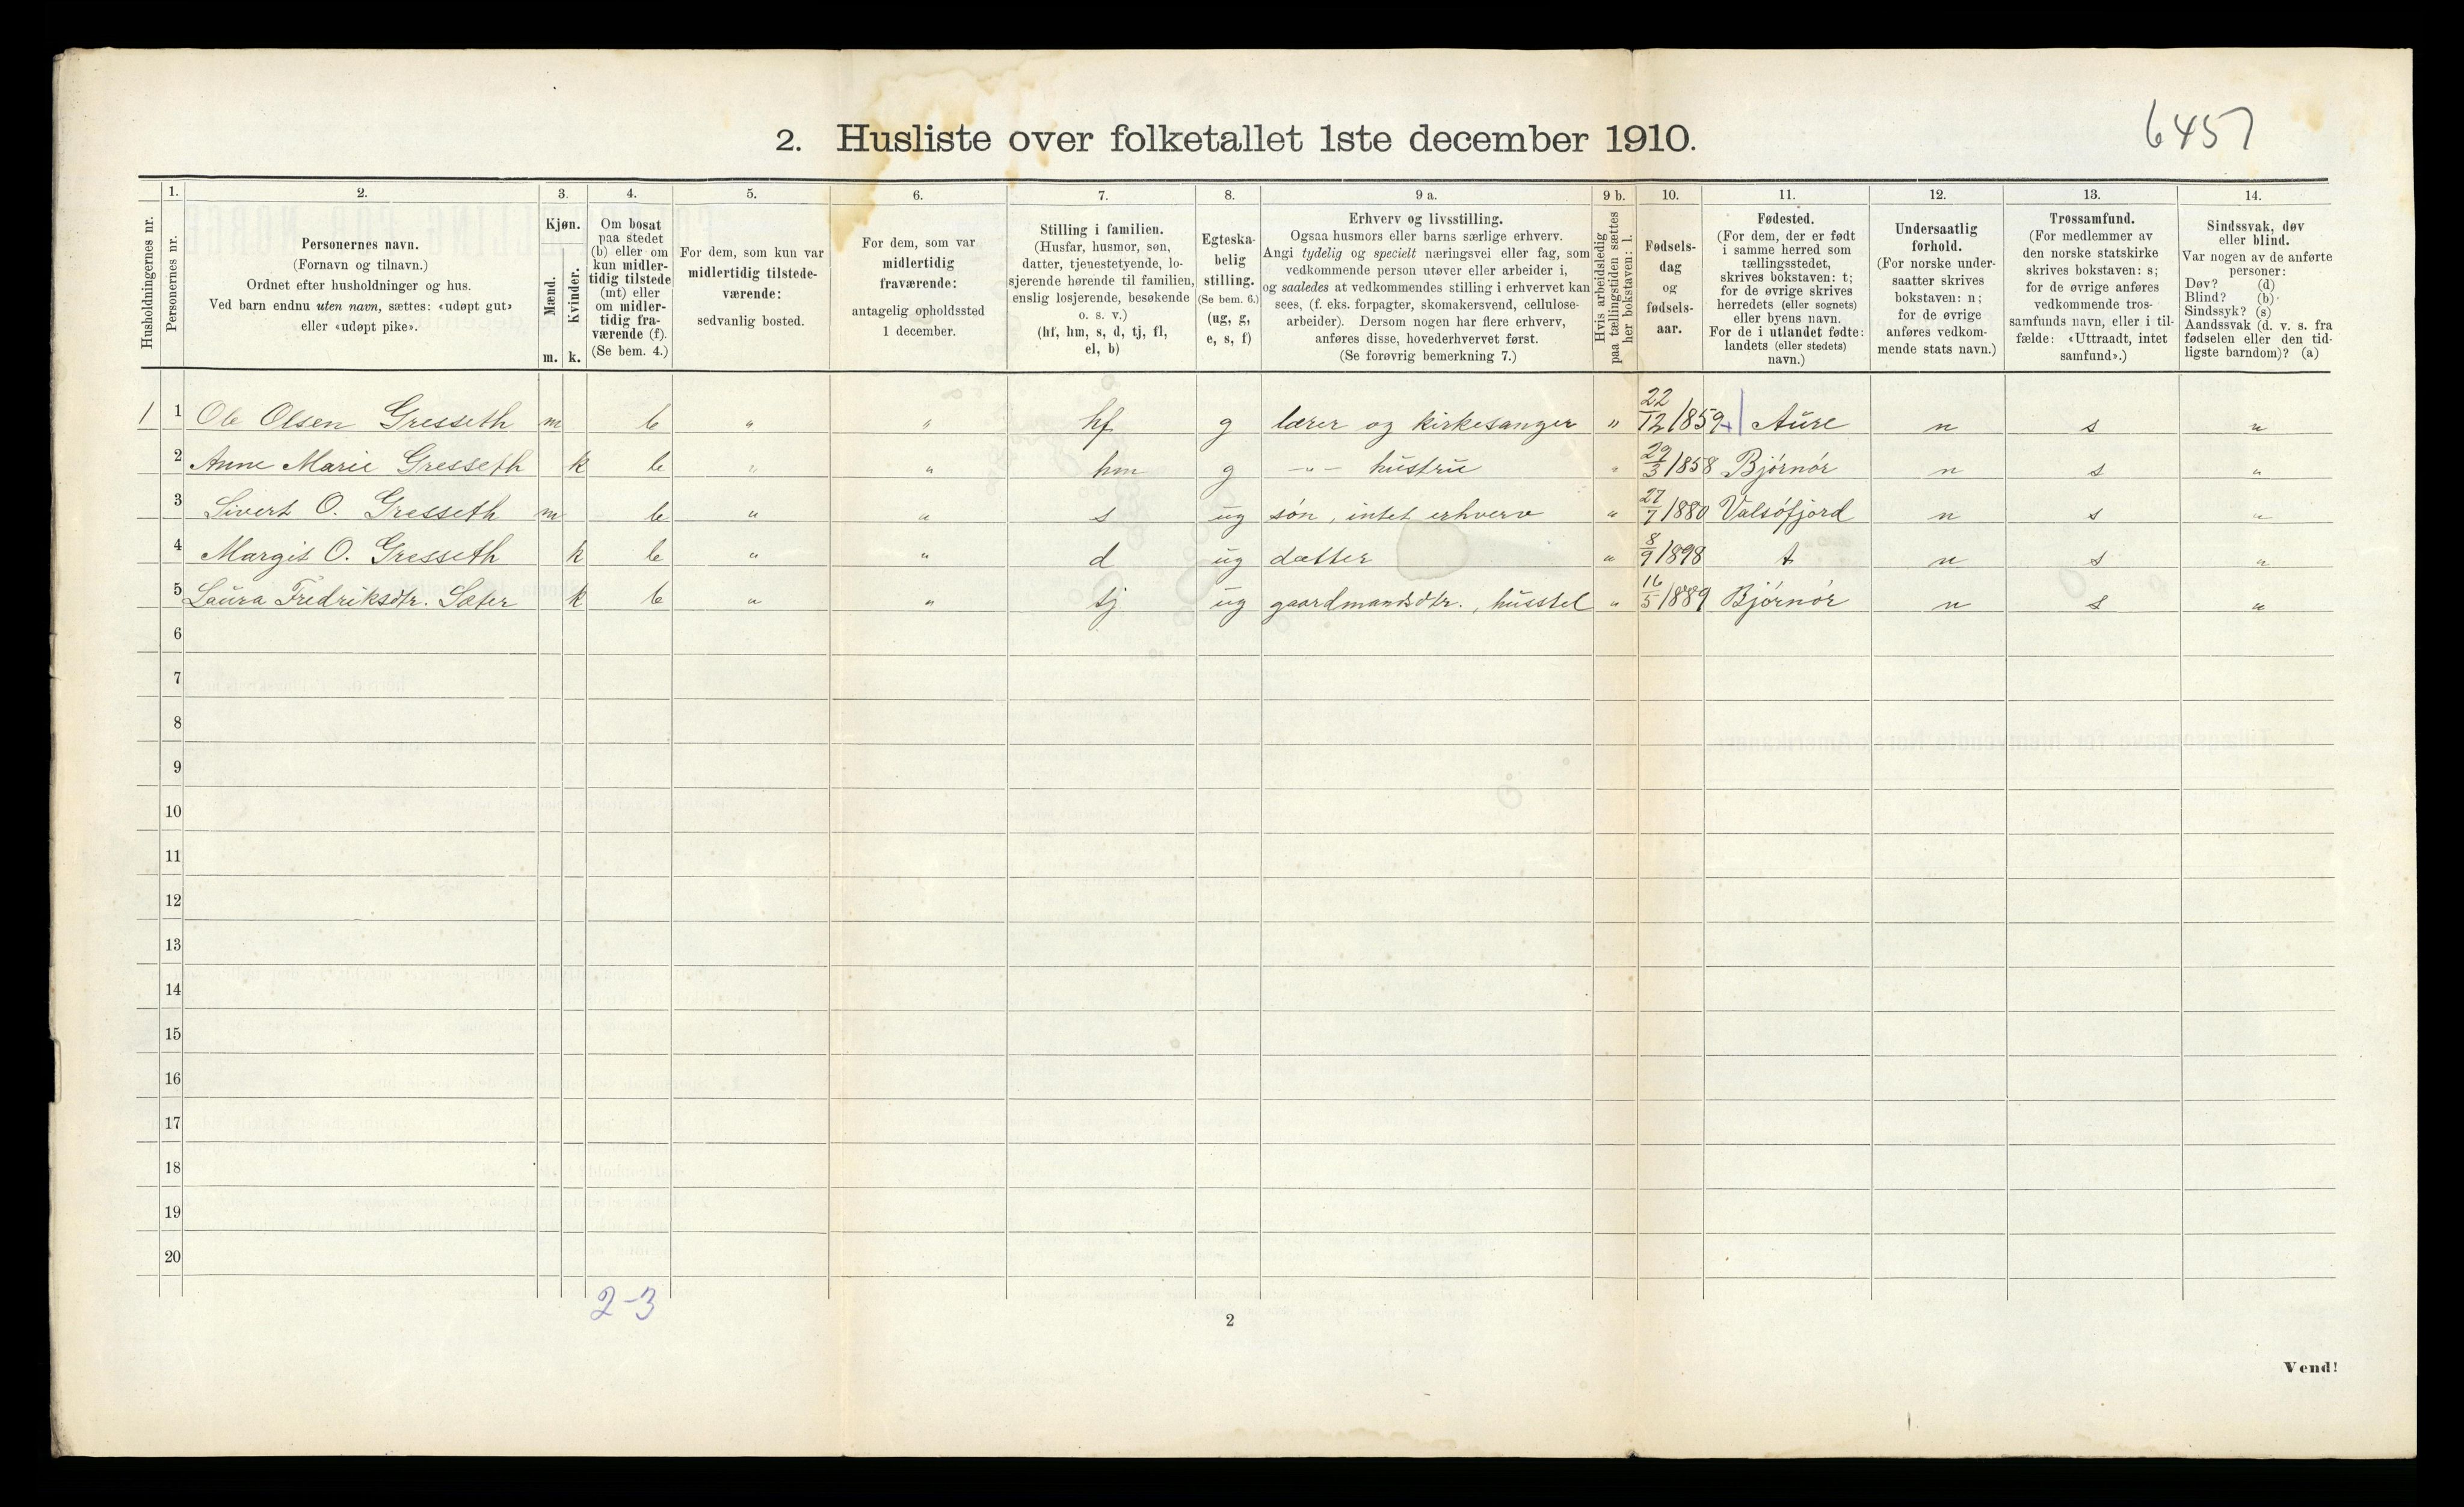 6457
2. Husliste over folketallet 1ste december 1910.
Husholdningernes nr.
1.
Personernes nr.
2.
Personernes navn.
(Fornavn og tilnavn.)
Ordnet efter husholdninger og hus.
Ved barn endnu uten navn, sættes: «udøpt gut»
eller «udøpt pike».
3.
Kjøn.
Mænd.
Kvinder.
m. k.
4.
Om bosat
paa stedet
(b) eller om
kun midler-
tidig tilstede
(mt) eller
om midler-
tidig fra-
værende (f).
(Se bem. 4.)
5.
For dem, som kun var
midlertidig tilstede-
værende:
sedvanlig bosted.
6.
For dem, som var
midlertidig
fraværende:
antagelig opholdssted
1 december.
7.
Stilling i familien.
(Husfar, husmor, søn,
datter, tjenestetyende, lo-
sjerende hørende til familien,
enslig losjerende, besøkende
o. s. v.)
(hf, hm, s, d, tj, fl,
el, b)
8.
Egteska-
belig
stilling.
(Se bem. 6.)
(ug, g,
e, s, f)
9 a.
Erhverv og livsstilling.
Ogsaa husmors eller barns særlige erhverv.
Angi tydelig og specielt næringsvei eller fag, som
vedkommende person utøver eller arbeider i,
og saaledes at vedkommendes stilling i erhvervet kan
sees, (f. eks. forpagter, skomakersvend, cellulose-
arbeider). Dersom nogen har flere erhverv,
anføres disse, hovederhvervet først.
(Se forøvrig bemerkning 7.)
9 b.
Hvis arbeidsledig
paa tællingstiden sættes
her bokstaven: l.
10.
Fødsels-
dag
og
fødsels-
aar.
11.
Fødested.
(For dem, der er født
i samme herred som
tællingsstedet,
skrives bokstaven: t;
for de øvrige skrives
herredets (eller sognets)
eller byens navn.
For de i utlandet fødte:
landets (eller stedets)
navn.)
12.
Undersaatlig
forhold.
(For norske under-
saatter skrives
bokstaven: n;
for de øvrige
anføres vedkom-
mende stats navn.)
13.
Trossamfund.
(For medlemmer av
den norske statskirke
skrives bokstaven: s;
for de øvrige anføres
vedkommende tros-
samfunds navn, eller i til-
fælde: «Uttraadt, intet
samfund».)
14.
Sindssvak, døv
eller blind.
Var nogen av de anførte
personer:
Døv? (d)
Blind? (b)
Sindssyk? (s)
Aandssvak (d. v. s. fra
fødselen eller den tid-
ligste barndom)? (a)
1 1 Ole Olsen Gresseth m b " " hf g lærer og kirkesanger " 22/12 1859 Aure n s "
2 Anne Marie Gresseth k b " " hm g -"- hustru " 29/3 1858 Bjørnør n s "
3 Sivert O. Gresseth m b " " s ug søn, intet erhverv " 27/7 1880 Valsøfjord n s "
4 Margit O. Gresseth k b " " d ug datter " 8/9 1898 t n s "
5 Laura Fredriksdtr. Sæter k b " " tj ug gaardmandsdtr., husstel " 16/5 1889 Bjørnør n s "
6
7
8
9
10
11
12
13
14
15
16
17
18
19
20
2-3
2
Vend!